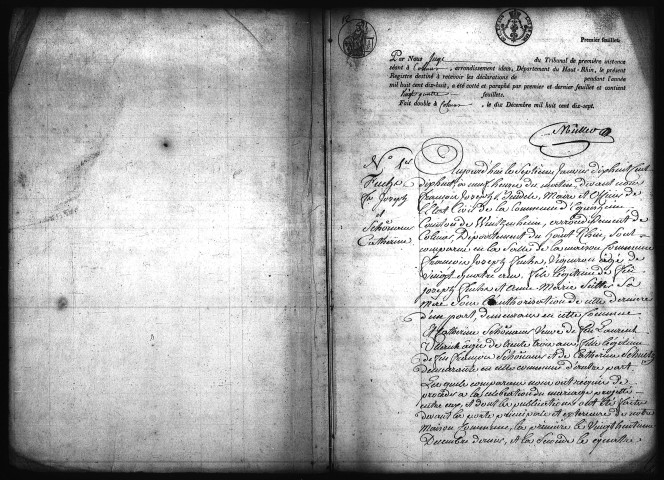 Premier feuillet.
Par Nous Juge du Tribunal de première instance
séant à Colmar, arrondissement idem, Département du Haut-Rhin, le présent
Registre destiné à recevoir les déclarations de pendant l'année
mil huit cent dix-huit, a été cotté et paraphé par premier et dernier feuillet et contient
vingt quatre feuillets.
Fait double à Colmar, le dix Décembre mil huit cent dix-sept.
Müller
N.o 1er
Fuchs
fr. Joseph
et
Schönauer
Catherine
Aujourd'hui le Septième Janvier dixhuit cent
dixhuit à neuf heures du matin, devant nous
François Joseph Maire et Officier de
l'Etat Civil de la Commune d'Eguisheim
Canton de Wintzenheim, arrondissement de
Colmar Département du haut Rhin, sont
comparus en la Salle de la maison commune
François Joseph Fuchs, Vigneron âgé de
vingt quatre ans, fils légitime de feu
Joseph Fuchs et Anne Marie Sa
Mère Sous l'authorisation de cette dernière
d'un part, demeurans en cette Commune
et Catherine Schönauer Veuve de feu Laurent
âgée de trente trois ans, fille légitime
de feu François Schönauer et de Catherine
demeurante en cette commune d'autre part.
Lesquels comparans nous ont requis de
procéder à la célébration du mariage projetté
entre eux, et dont les publications ont été faites
devant la porte principale et exterieure de notre
Maison Commune, la première le Vingt huitième
Décembre dernier, et la Seconde le quatre